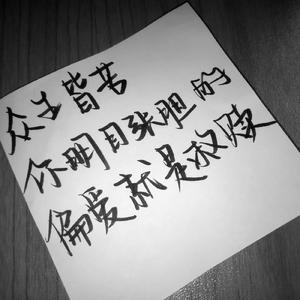 众生皆苦
你明目张胆的
偏爱就是救赎